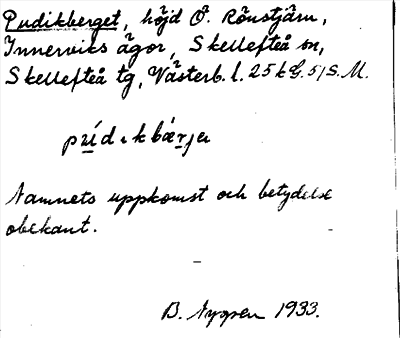 Pudikberget, höjd Ö. Rönstjärn,
Innerviks ägor, Skellefteå sn,
Skellefteå tg, Västerb. l. 25 k G. 5, S. M.
Namnets uppkomst och betydelse
obekant.
B. Nygren 1933.